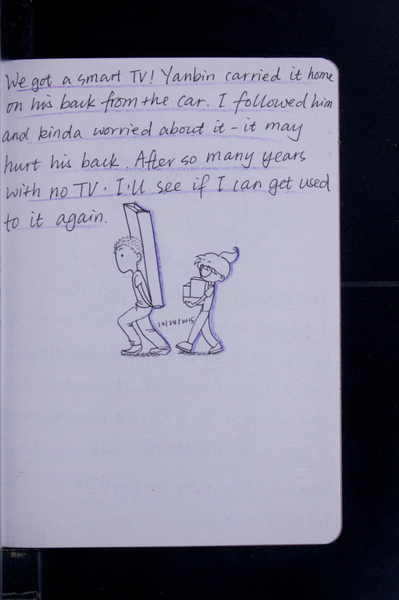 We got a smart TV! Yanbin carried it home
on his back from the car. I followed him
and kinda worried about it - it may
hurt his back. After so many years
with no TV. I'll see if I can get used
to it again.
10/24/2015